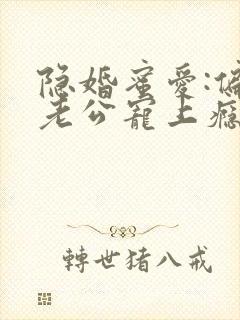 隐婚蜜爱:偏
老公宠上瘾
轉世猪八戒